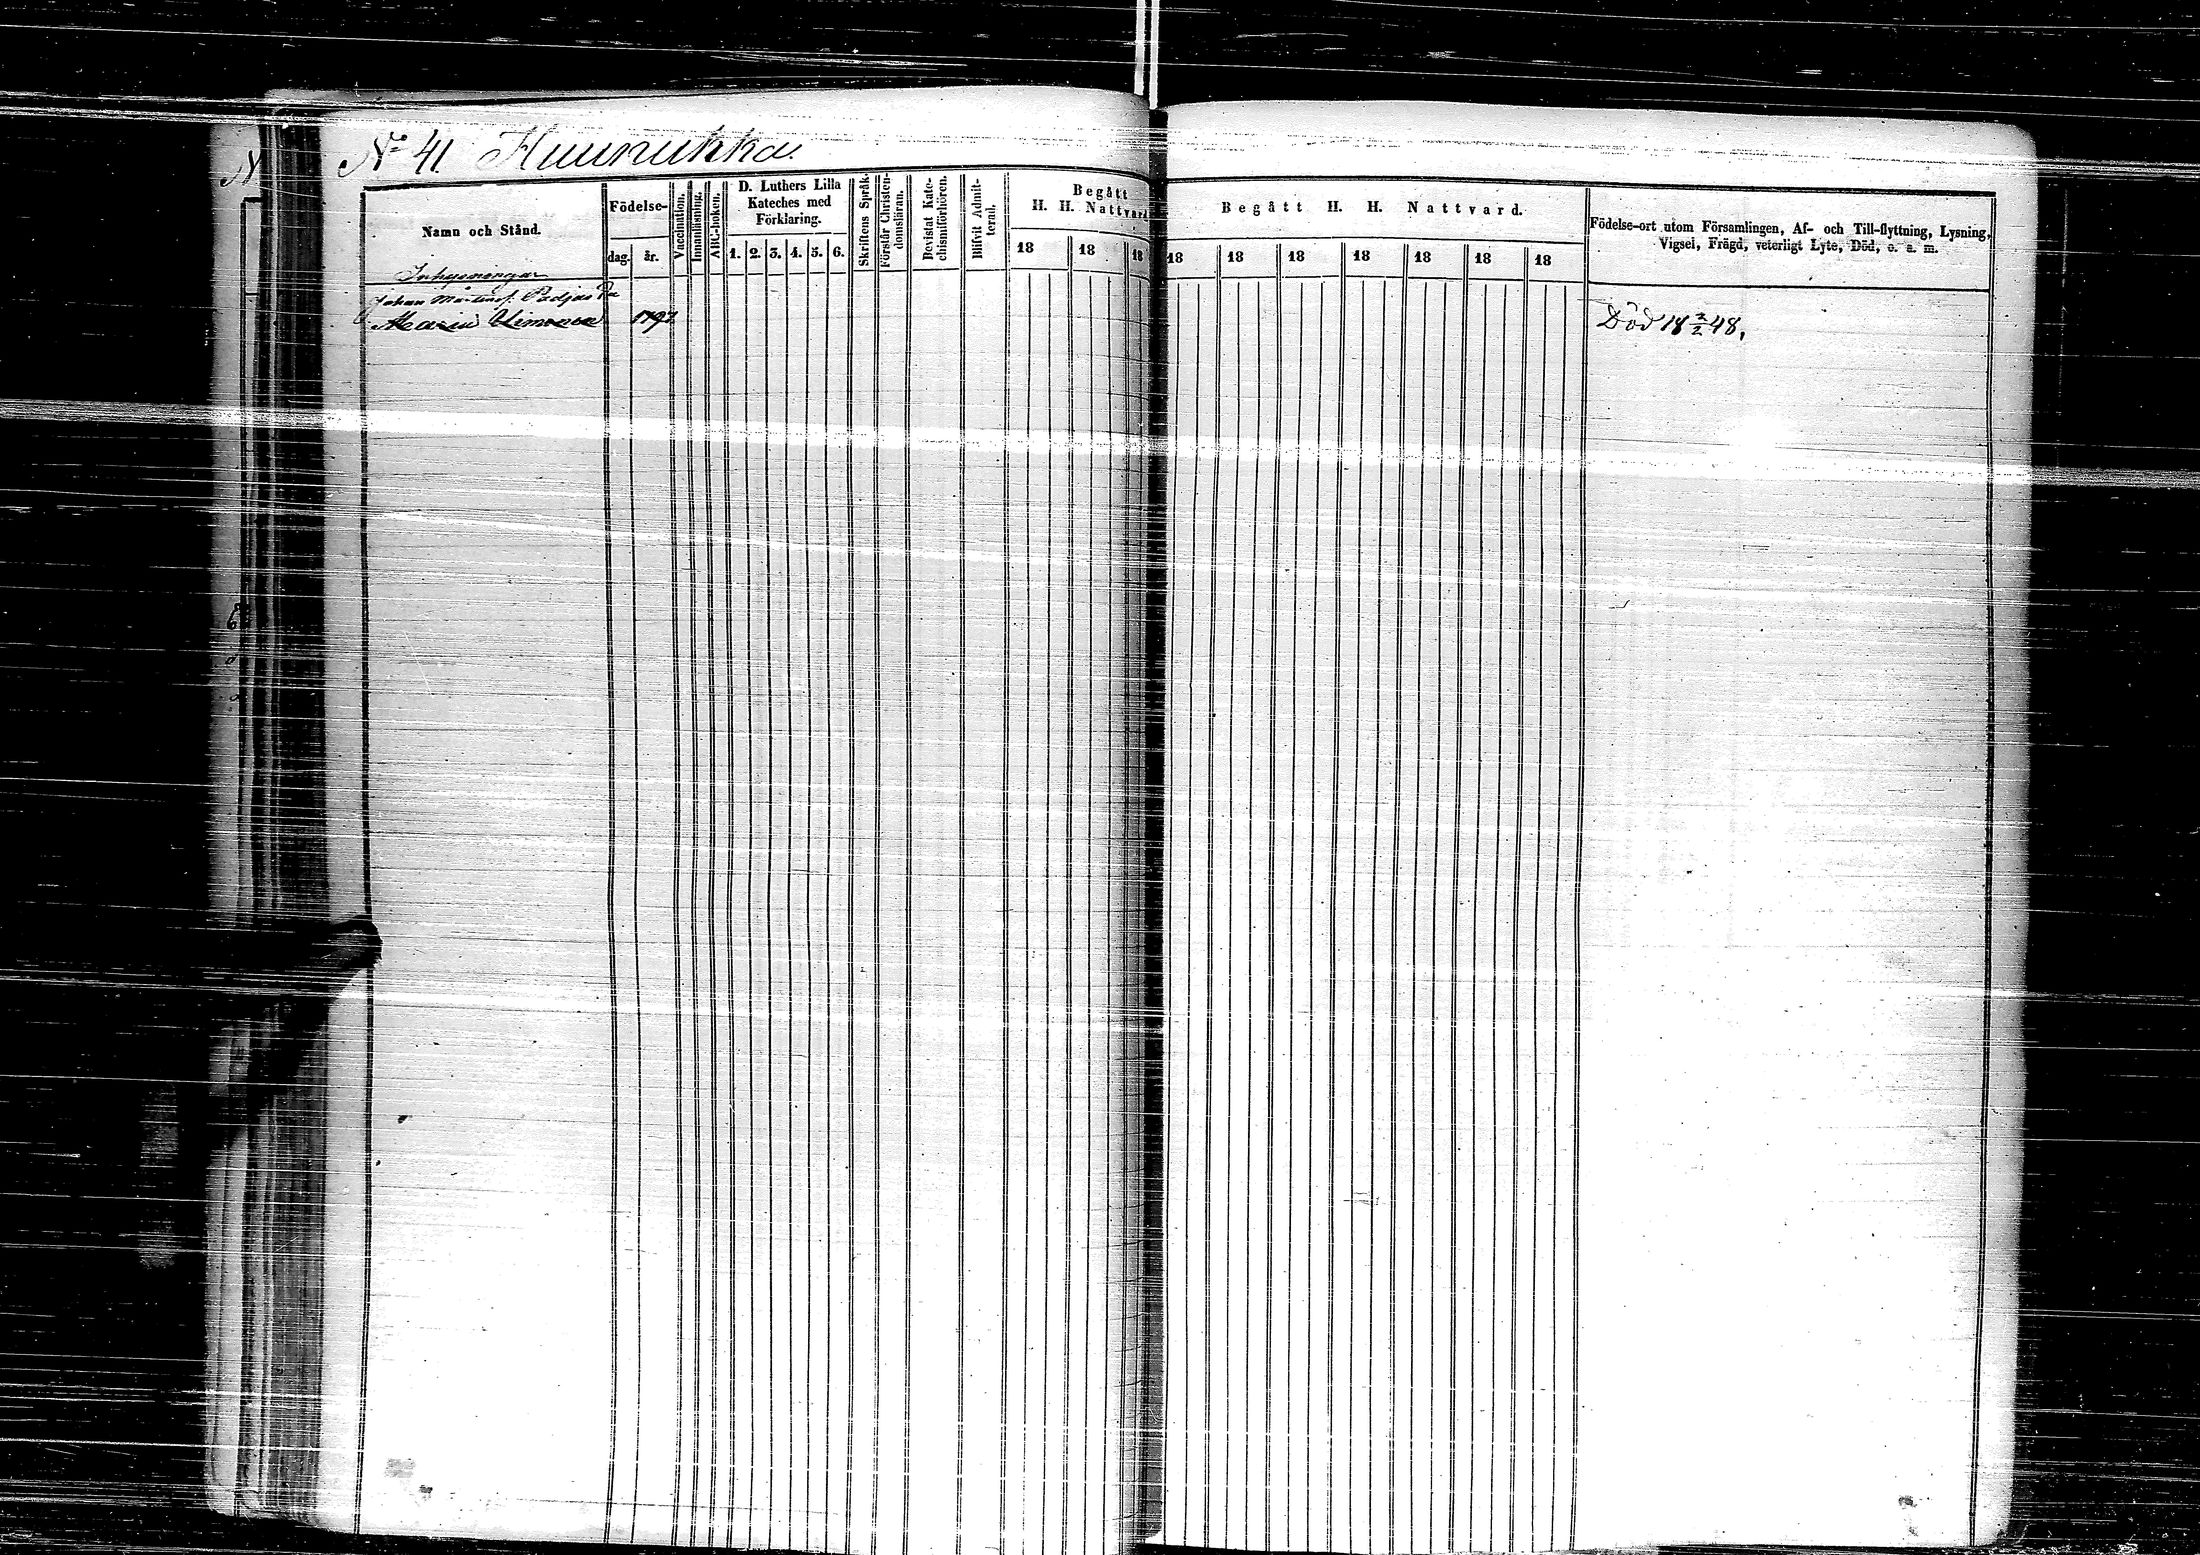 N
Nº 41. Huunukka.
Namn och Stånd.
Födelse-
dag.
år.
Vaccination.
Innanläsning.
ABC-boken.
D. Luthers Lilla
Kateches med
Förklaring.
1. 2. 3. 4. 5. 6.
Skriftens Språk.
Förstår Christen-
domsläran.
Bevistat Kate-
chismiförhören.
Blifvit Admit-
terad.
Begått
H. H. Nattvard
18 18 18
Begått H. H. Nattvard.
18 18 18 18 18 18 18
Födelse-ort utom Församlingen, Af- och Till-flyttning, Lysning,
Vigsel, Frägd, veterligt Lyte, Död, o. a. m.
Inhysningar
Johan Mårtens.
Maria Simonsd 1797
Död 18 2/2 48.